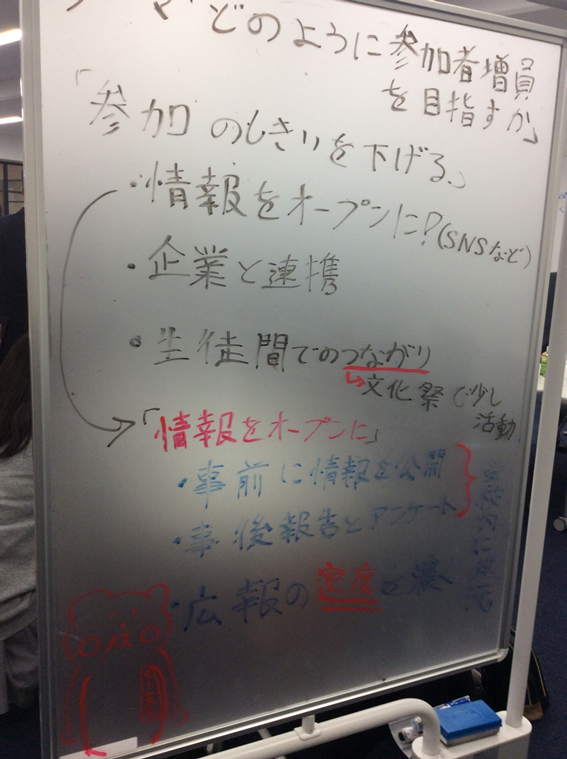 どのように参加者増員
を目指すか」
「参加のしきいを下げる。」
・情報をオープンに?(SNSなど)
・企業と連携
・生徒間でのつながり
文化祭で少し
活動
「情報をオープンに」
・事前に情報を公開
・事後報告とアンケート
・広報の を